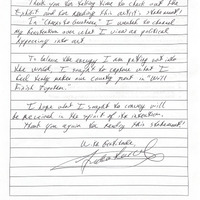 Thank you for taking time to check out the
Exhibit and for reading this artist statement!
In "Cheers to Gratitude" I wanted to channel
my frustration over what I view as political
happening into art.
To balance the energy I am putting out into
the world, I sought to capture what I
feel truly makes our country great in "Will
Finish Together."
I hope what I sought to convey will
be received in the spirit of its intention.
Thank you again for reading this statement!
With Gratitude,